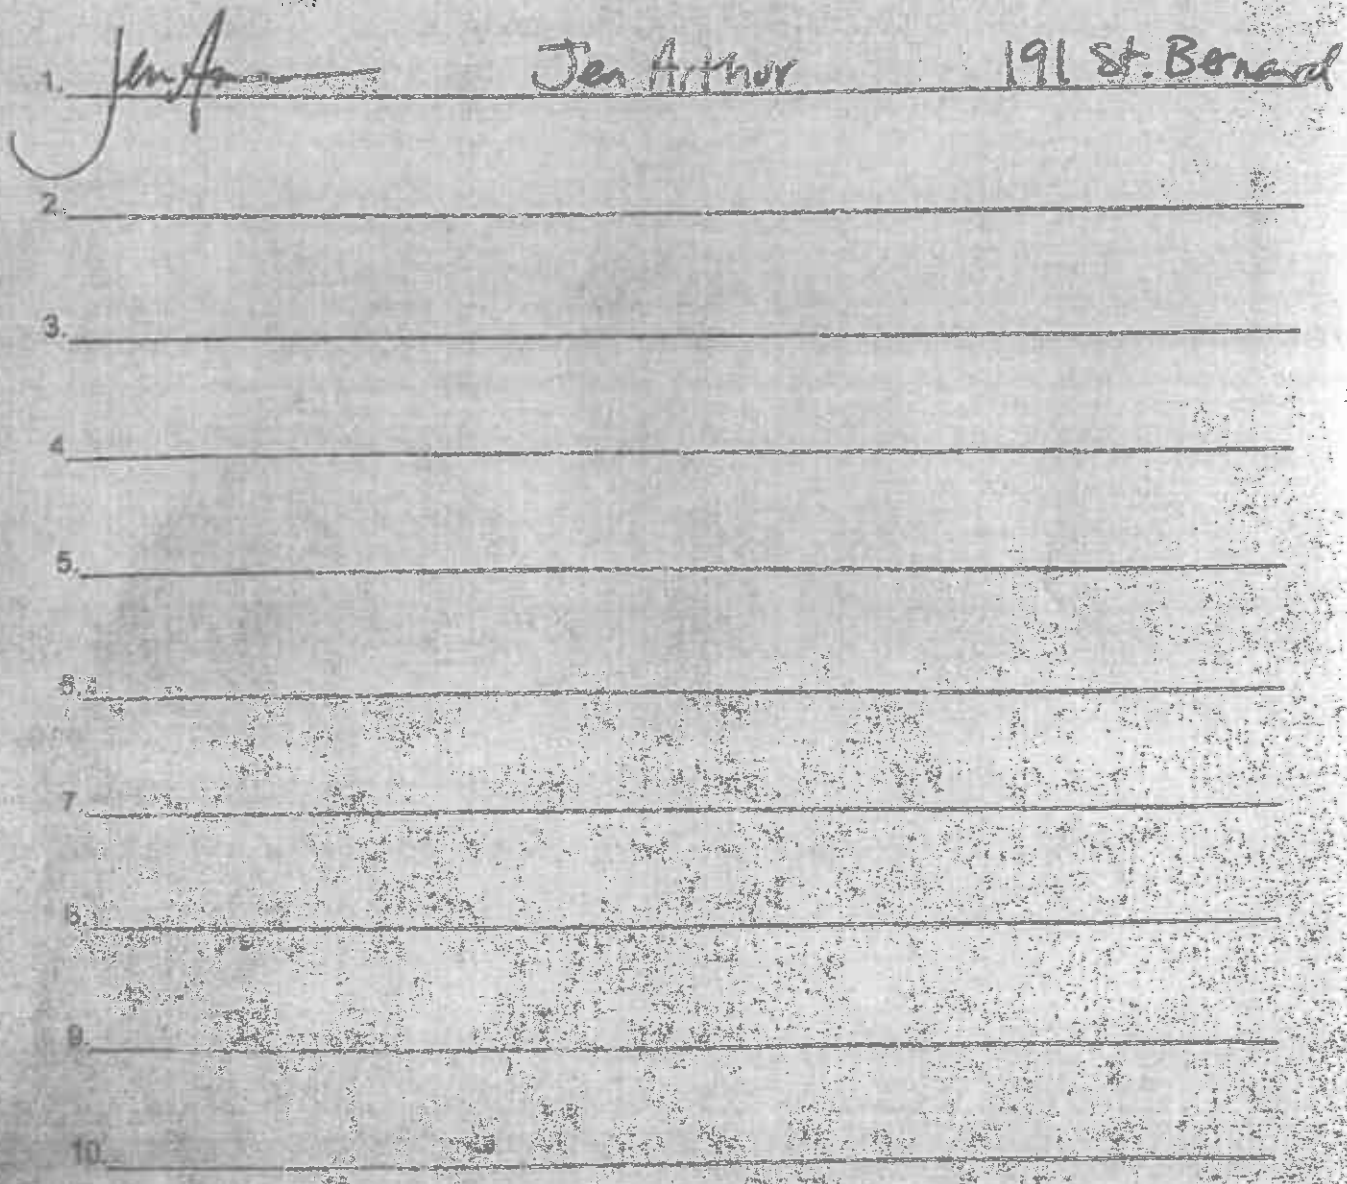 1. Jen Ar Jen Arthur 191 St. Bernard
2.
3.
4.
5.
6.
7.
8.
9.
10.